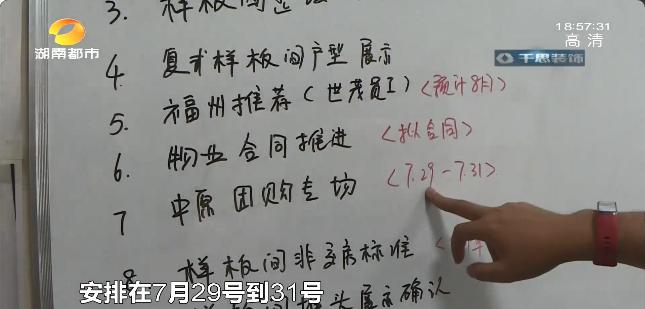 3. 样板间
18:57:31
高清
湖南都市
千思装饰
4. 复式样板间户型展示
5. 福州推荐(世茂员工)<预计8月>
6. 物业合同推进 <拟合同>
7 中原团购专场 <7.29-7.31>
8 样板间非交房标准
展示确认
安排在7月29号到31号